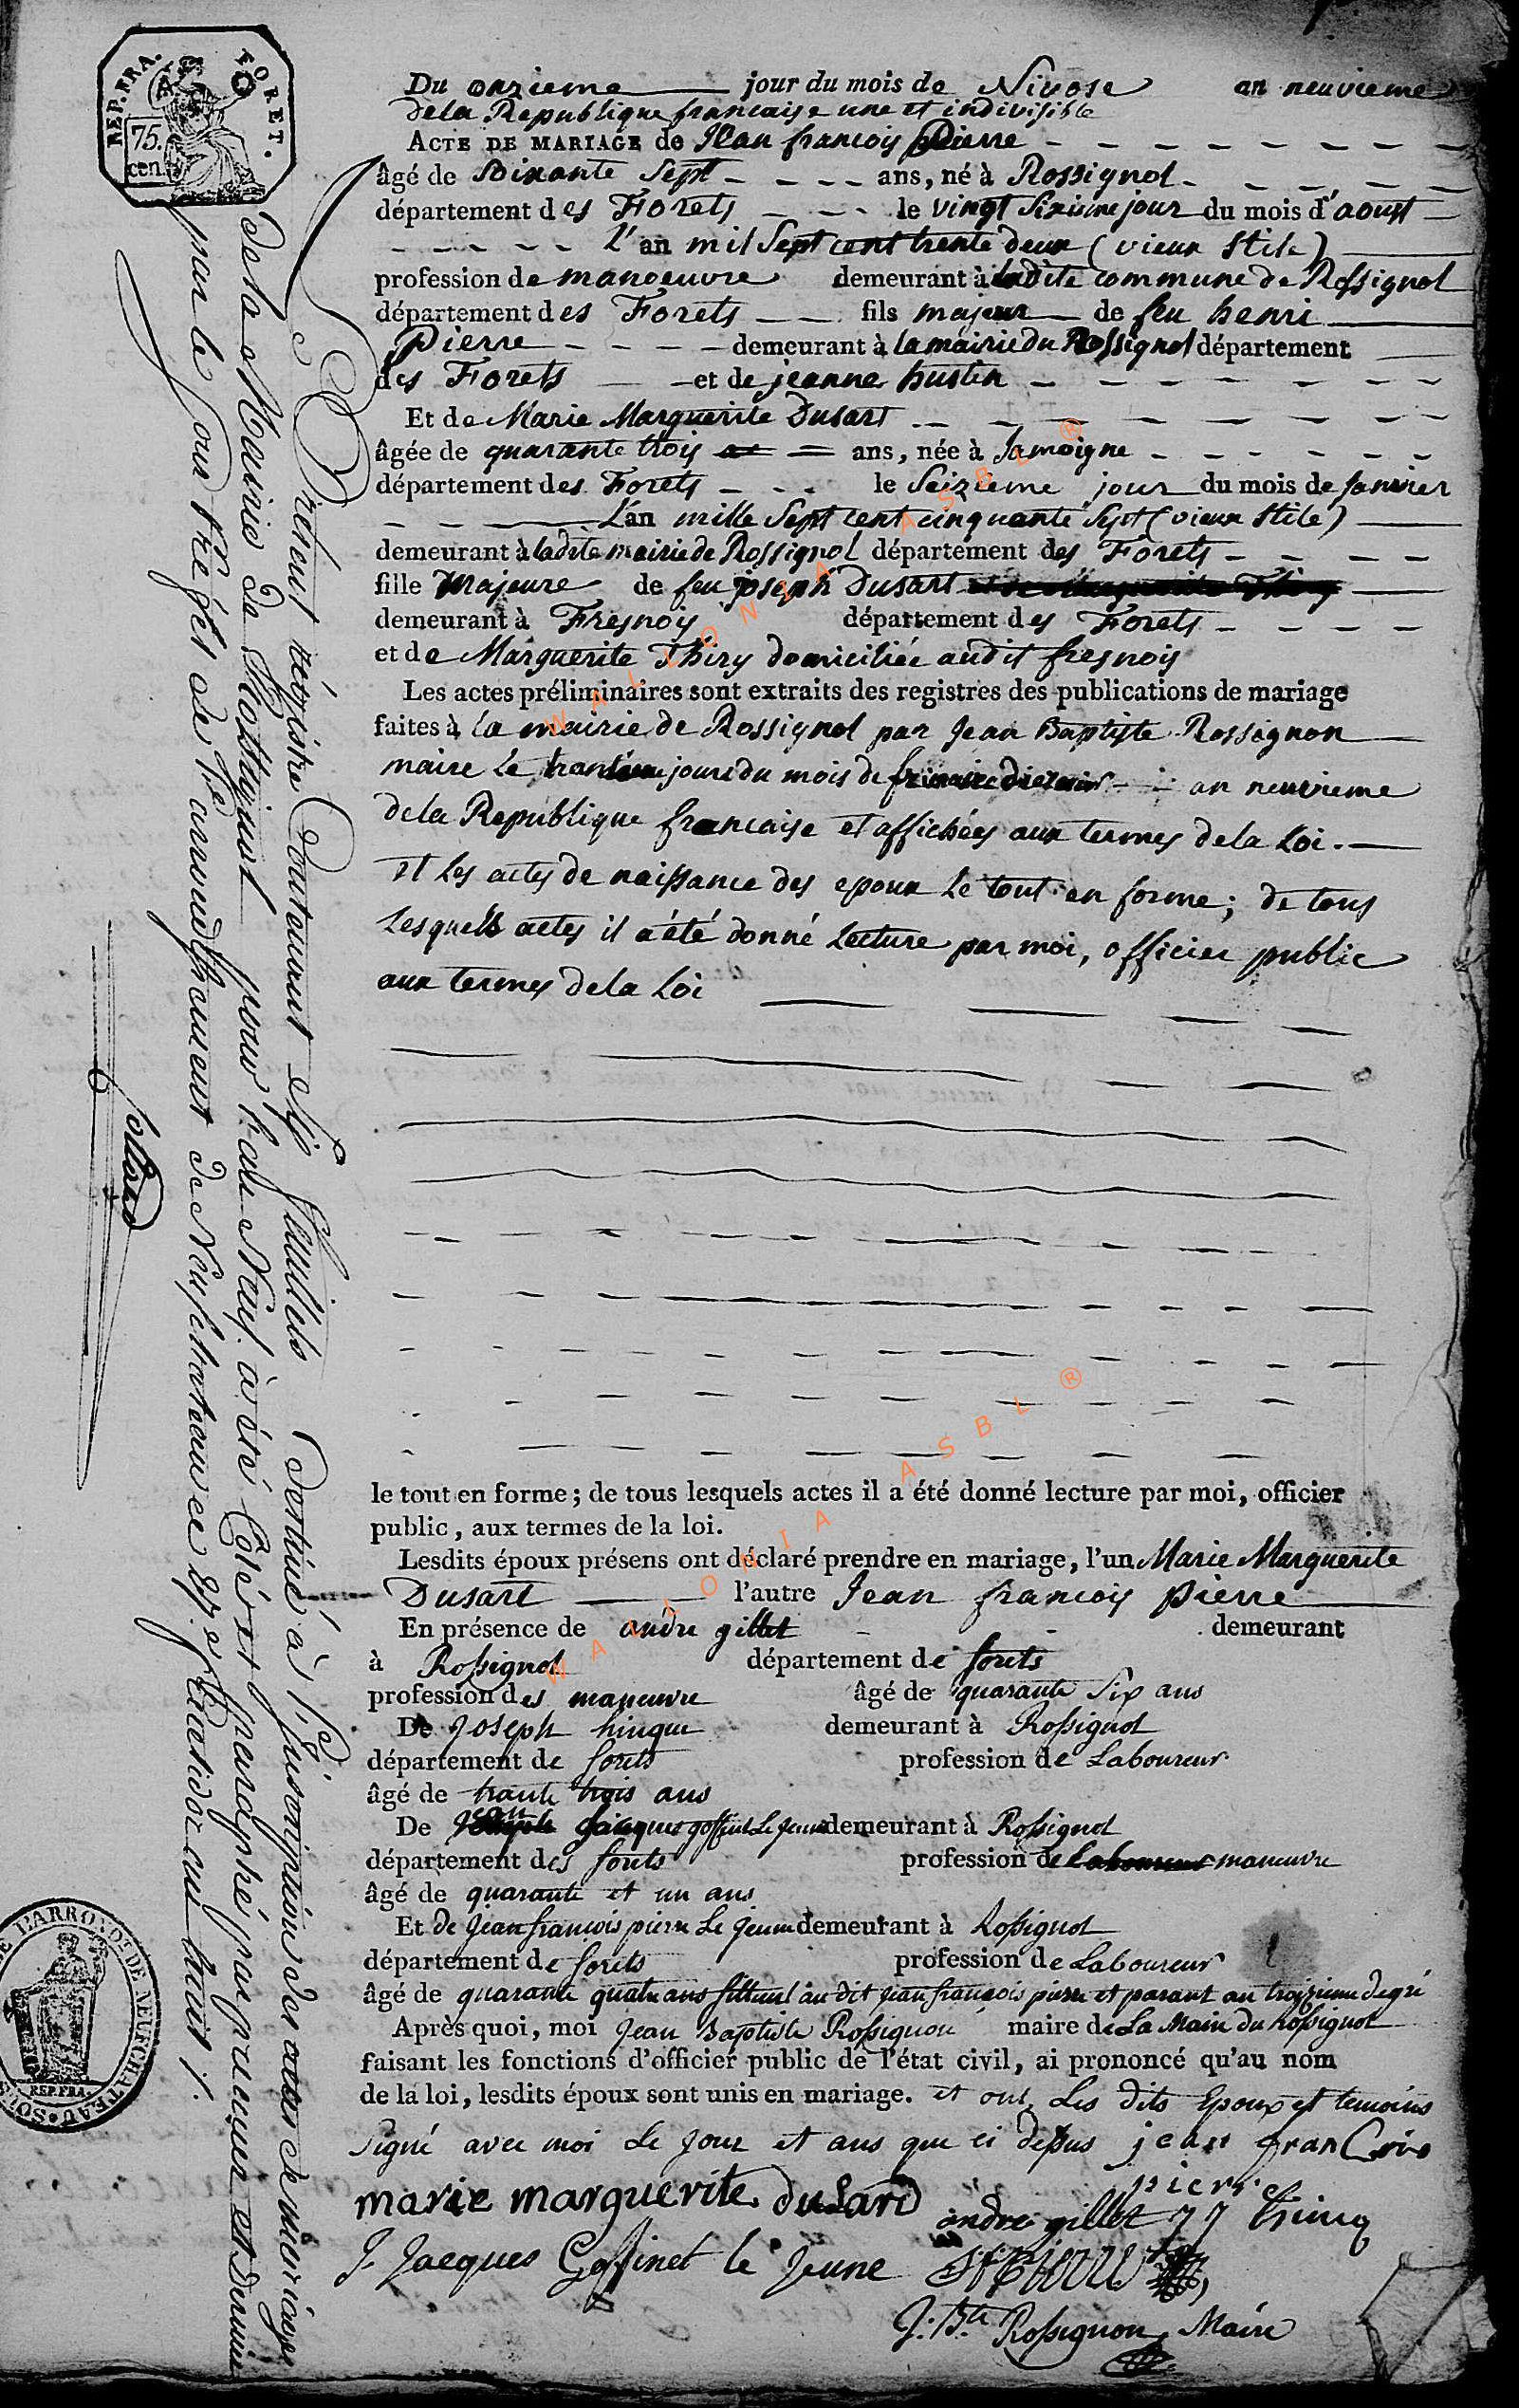 REP. FRA. FORET.
75.
cen.
Du onzieme jour du mois de Nivose an neuvieme
dela Republique francaise une et indivisible
ACTE DE MARIAGE de Jean francois Pierre
âgé de Soixante Sept ans, né à Rossignol
département des Forets le vingt Sixieme jour du mois d'aoust
L'an mil Sept cent trente deux (vieux Stile)
profession de manoeuvre demeurant à ladite commune de Rossignol
département des Forets fils majeur de feu henri
Pierre demeurant à la mairie du Rossignol département
des Forets et de jeanne hustin
Et de Marie Marguerite Dusart
âgée de quarante trois ans, née à Jamoigne
département des Forets le Seizieme jour du mois de Janvier
L'an mille Sept cent cinquante Sept (vieux Stile)
demeurant à ladite mairie de Rossignol département des Forets
fille Majeure de feu joseph Dusart
demeurant à Fresnois département des Forets
et de Marguerite Thiry domiciliée audit fresnois
Les actes préliminaires sont extraits des registres des publications de mariage
faites à la mairie de Rossignol par Jean Baptiste Rossignon
maire le trentieme jours du mois de frimaire dernier an neuvieme
dela Republique francaise et affichées aux termes dela Loi.
et Les actes de naissance des epoux Le tout en forme; de tous
Lesquels actes il a été donné Lecture par moi, officier public
aux termes dela Loi
le tout en forme; de tous lesquels actes il a été donné lecture par moi, officier
public, aux termes de la loi.
Lesdits époux présens ont déclaré prendre en mariage, l'un Marie Marguerite
Dusart l'autre Jean francois Pierre
En présence de andre gillet demeurant
à Rossignol département de forets
profession des maneuvre âgé de quarante Six ans
De Joseph hinque demeurant à Rossignol
département de forets profession de Laboureur
âgé de trante trois ans
De Jean Jacques goffinet Le Jeune demeurant à Rossignol
département des forets profession de maneuvre
âgé de quarante et un ans
Et de Jean francois pierre Le Jeune demeurant à Rossignol
département de forets profession de Laboureur
âgé de quarante quatre ans filleul au dit jean francois pierre et parant au troizieme degré
Après quoi, moi Jean Baptiste Rossignon maire de La Mairie du Rossignol
faisant les fonctions d'officier public de l'état civil, ai prononcé qu'au nom
de la loi, lesdits époux sont unis en mariage. et ont Les dits Epoux et temoins
signé avec moi Le jour et ans que ci dessus jean franCois
pierre
marie marguerite dusard andre gillet JJ hinq
J Jacques Goffinet le Jeune JF Pierre
J. Bte Rossignon, Maire
Le Présent régistre Contenant dix feuillets destiné à l'Inscription des actes de mariage
de la Mairie de Rossignol pour l'an Neuf a été Coté et paraphé par premier et dernier
par le Sous Préfet du 1er arrondissement de Neufchateau ce 27 fructidor an huit
Collard
SOUS L'ARROND. DE NEUFCHATEAU
REP. FRA.
WALLONIA ASBL ®
WALLONIA ASBL ®